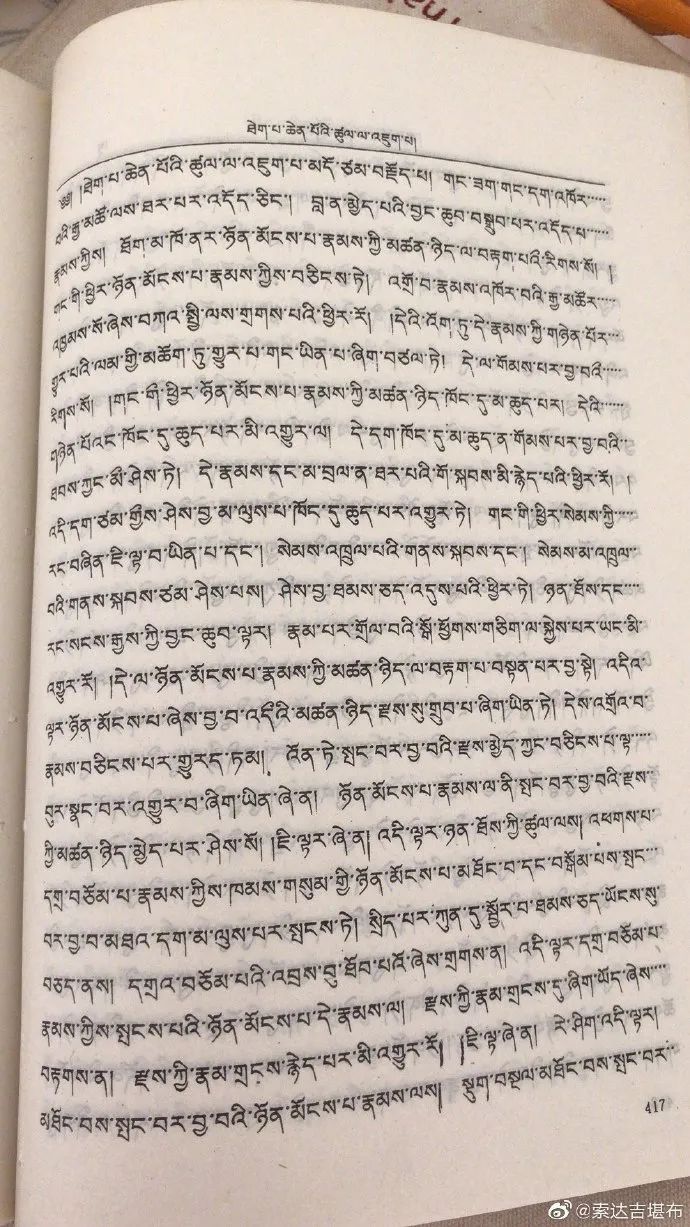 ཐེག་པ་ཆེན་པོའི་ཚུལ་ལ་འཇུག་པ།
༄༅། །ཐེག་པ་ཆེན་པོའི་ཚུལ་ལ་འཇུག་པ་མདོ་ཙམ་བརྗོད་པ། གང་ཟག་གང་དག་འཁོར་.....
བའི་རྒྱ་མཚོ་ལས་ཐར་པར་འདོད་ཅིང་། བླ་ན་མྱེད་པའི་བྱང་ཆུབ་བསྒྲུབ་པར་འདོད་པ་.....
རྣམས་ཀྱིས། ཐོག་མ་ཁོ་ནར་ཉོན་མོངས་པ་རྣམས་ཀྱི་མཚན་ཉིད་ལ་བརྟག་པའི་རིགས་སོ། །
གང་གི་ཕྱིར་ཉོན་མོངས་པ་རྣམས་ཀྱིས་བཅིངས་ཏེ། འགྲོ་བ་རྣམས་འཁོར་བའི་རྒྱ་མཚོར་....
འཁྱམས་སོ་ཞེས་བཀའ་སྤྱི་ལས་གྲགས་པའི་ཕྱིར་རོ། །དེའི་འོག་ཏུ་དེ་རྣམས་ཀྱི་གཉེན་པོར་...
གྱུར་པའི་ལམ་གྱི་མཆོག་ཏུ་གྱུར་པ་གང་ཡིན་པ་ཞིག་བཙལ་ཏེ། དེ་ལ་གོམས་པར་བྱ་བའི་.....
རིགས་སོ། །གང་གི་ཕྱིར་ཉོན་མོངས་པ་རྣམས་ཀྱི་མཚན་ཉིད་ཁོང་དུ་མ་ཆུད་པར། དེའི་.....
གཉེན་པོའང་ཁོང་དུ་ཆུད་པར་མི་འགྱུར་ལ། དེ་དག་ཁོང་དུ་མ་ཆུད་ན་གོམས་པར་བྱ་བའི་..
ཐབས་ཀྱང་མི་ཤེས་ཏེ། དེ་རྣམས་དང་མ་བྲལ་ན་ཐར་པའི་གོ་སྐབས་མི་རྙེད་པའི་ཕྱིར་རོ། །
འདི་དག་ཙམ་གྱིས་ཤེས་བྱ་མ་ལུས་པ་ཁོང་དུ་ཆུད་པར་འགྱུར་ཏེ། གང་གི་ཕྱིར་སེམས་ཀྱི་....
རང་བཞིན་ཇི་ལྟ་བ་ཡིན་པ་དང་། སེམས་འཁྲུལ་པའི་གནས་སྐབས་དང་། སེམས་མ་འཁྲུལ་..
བའི་གནས་སྐབས་ཙམ་ཤེས་པས། ཤེས་བྱ་ཐམས་ཅད་འདུས་པའི་ཕྱིར་ཏེ། ཉན་ཐོས་དང་....
རང་སངས་རྒྱས་ཀྱི་བྱང་ཆུབ་ལྟར། རྣམ་པར་གྲོལ་བའི་སྒོ་ཕྱོགས་གཅིག་ལ་སྐྱེས་པར་ཡང་མི་
འགྱུར་རོ། །དེ་ལ་ཉོན་མོངས་པ་རྣམས་ཀྱི་མཚན་ཉིད་ལ་བརྟག་པ་བསྟན་པར་བྱ་སྟེ། འདིའ་
ལྟར་ཉོན་མོངས་པ་ཞེས་བྱ་བ་འདིའི་མཚན་ཉིད་རྫས་སུ་གྲུབ་པ་ཞིག་ཡིན་ཏེ། དེས་འགྲོའ་བ་
རྣམས་བཅིངས་པར་གྱུརད་ཏམ། འོན་ཏེ་སྤང་བར་བྱ་བའི་རྫས་མྱེད་ཀྱང་བཅིངས་པ་ལྟ་.....
བུར་སྣང་བར་འགྱུར་བ་ཞིག་ཡིན་ཞེ་ན། ཉོན་མོངས་པ་རྣམས་ལ་ནི་སྤང་བར་བྱ་བའི་རྫས་
ཀྱི་མཚན་ཉིད་མྱེད་པར་ཤེས་སོ། །ཇི་ལྟར་ཞེ་ན། འདི་ལྟར་ཉན་ཐོས་ཀྱི་ཚུལ་ལས། འཕགས་པ་
དགྲ་བཅོམ་པ་རྣམས་ཀྱིས་ཁམས་གསུམ་གྱི་ཉོན་མོངས་པ་མཐོང་བ་དང་བསྒོམ་པས་སྤང་...
བར་བྱ་བ་མཐའ་དག་མ་ལུས་པར་སྤངས་ཏེ། སྲིད་པར་ཀུན་དུ་སྦྱོར་བ་ཐམས་ཅད་ཡོངས་སུ་
བཅད་ནས། དགྲའ་བཅོམ་པའི་འབྲས་བུ་ཐོབ་པའོ་ཞེས་གྲགས་ན། འདི་ལྟར་དགྲ་བཅོམ་པ་
རྣམས་ཀྱིས་སྤངས་པའི་ཉོན་མོངས་པ་དེ་རྣམས་ལ། རྫས་ཀྱི་རྣམ་གྲངས་དུ་ཞིག་ཡོད་ཞེས་....
བརྟགས་ན། རྫས་ཀྱི་རྣམ་གྲངས་རྙེད་པར་མི་འགྱུར་རོ། །ཇི་ལྟ་ཞེ་ན། རེ་ཤིག་འདི་ལྟར།
མཐོང་བས་སྤང་བར་བྱ་བའི་ཉོན་མོངས་པ་རྣམས་ལས། སྡུག་བསྔལ་མཐོང་བས་སྤང་བར་...
417
@索达吉堪布